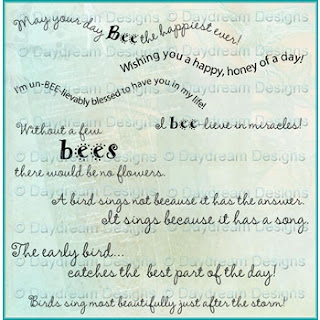 May your day Bee the happiest ever!
Wishing you a happy, honey of a day!
I'm un-BEE-lievably blessed to have you in my life!
I bee-lieve in miracles!
Without a few
bees
there would be no flowers.
A bird sings not because it has the answer.
It sings because it has a song.
The early bird...
catches the best part of the day!
Birds sing most beautifully just after the storm!
© Daydream Designs